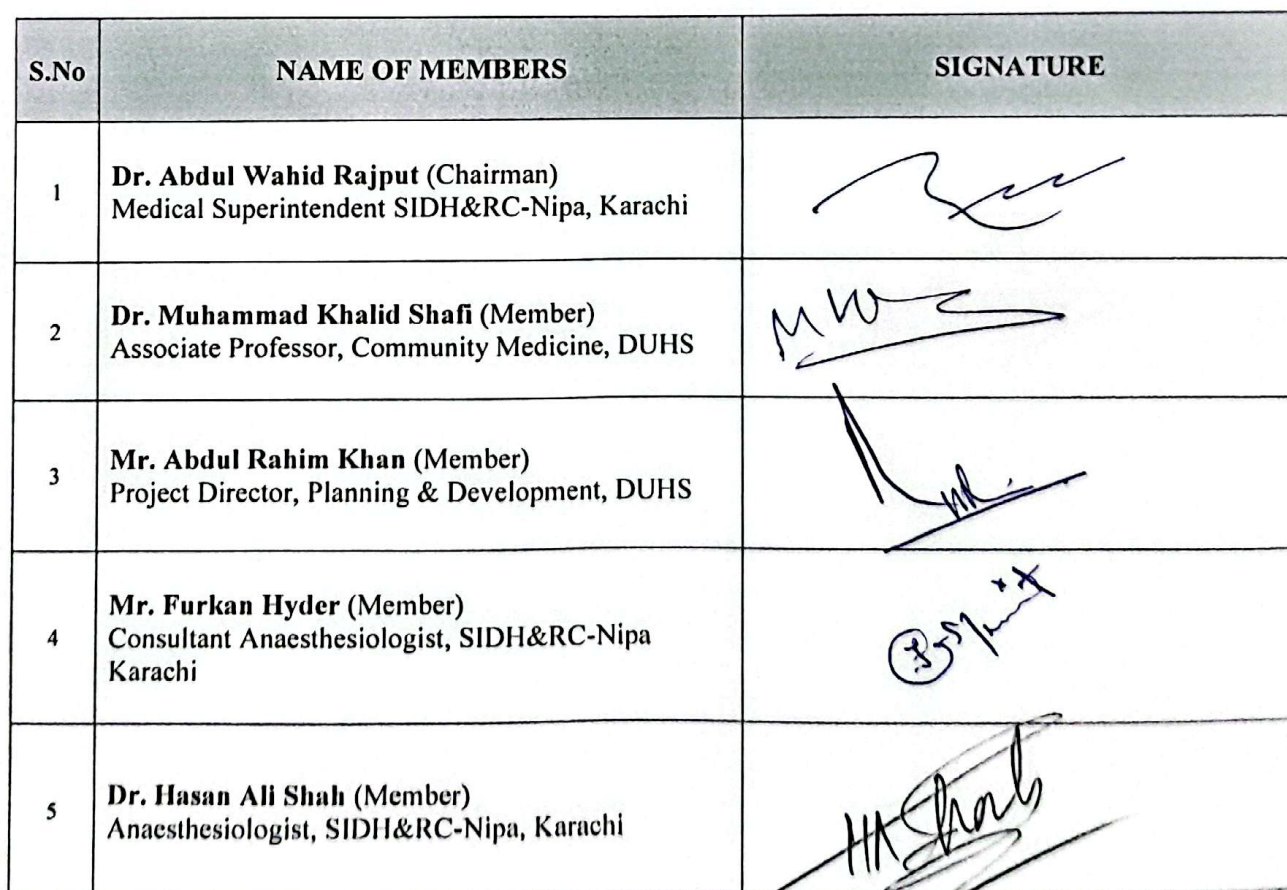 S.No NAME OF MEMBERS SIGNATURE
1 Dr. Abdul Wahid Rajput (Chairman)
Medical Superintendent SIDH&RC-Nipa, Karachi
2 Dr. Muhammad Khalid Shafi (Member)
Associate Professor, Community Medicine, DUHS
3 Mr. Abdul Rahim Khan (Member)
Project Director, Planning & Development, DUHS
4 Mr. Furkan Hyder (Member)
Consultant Anaesthesiologist, SIDH&RC-Nipa
Karachi
5 Dr. Hasan Ali Shah (Member)
Anaesthesiologist, SIDH&RC-Nipa, Karachi
HA Shah